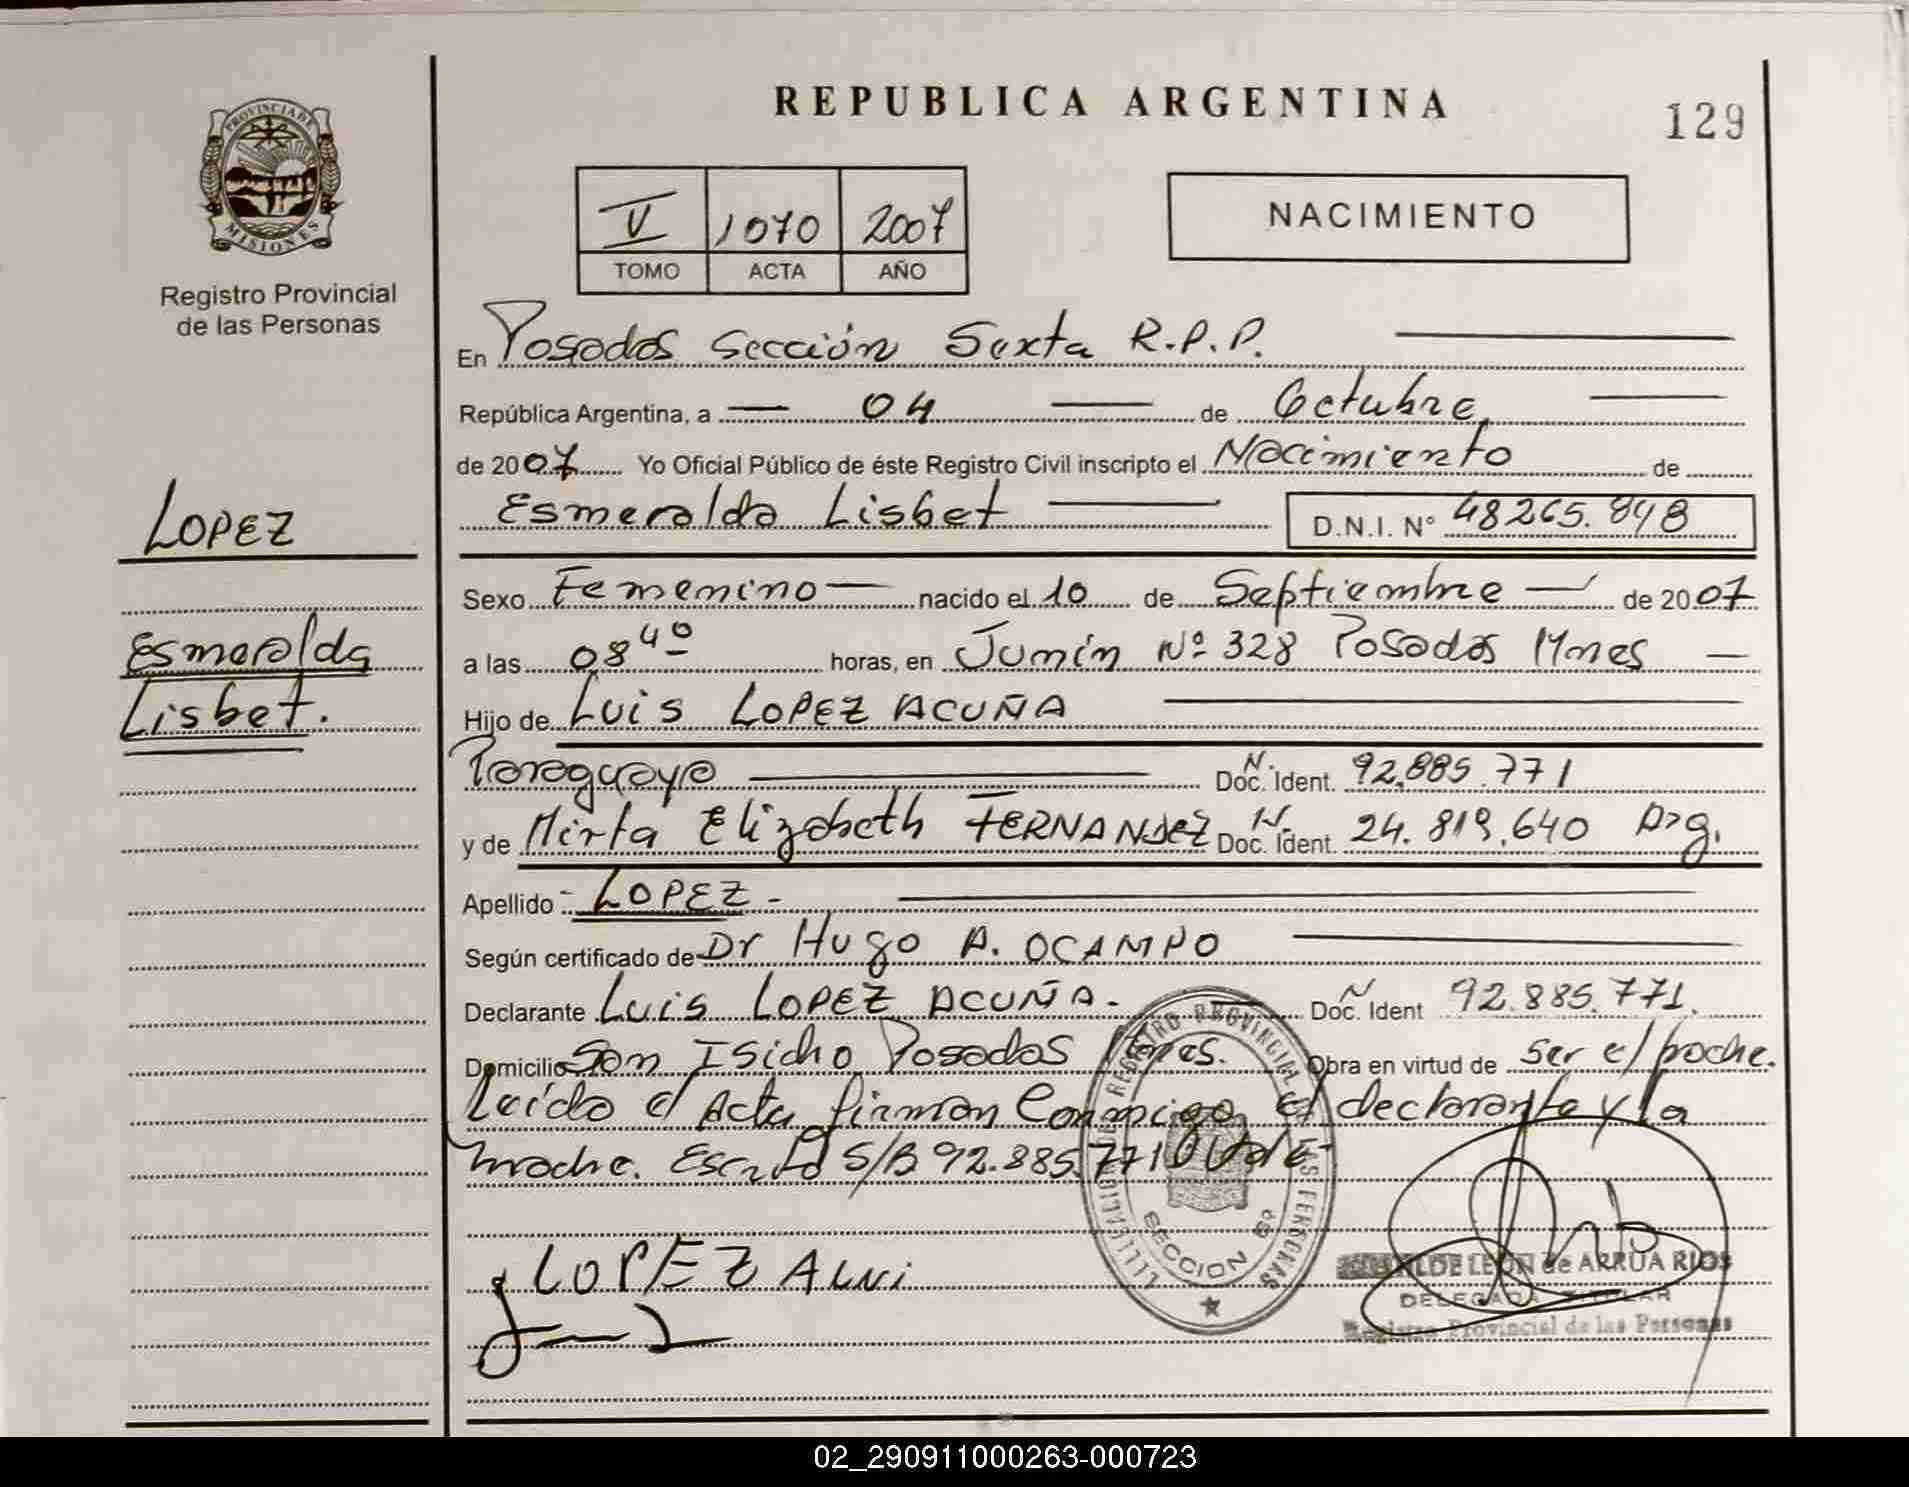 REPUBLICA ARGENTINA
129
PROVINCIA DE
MISIONES
Registro Provincial
de las Personas
V 1070 2007
TOMO ACTA AÑO
NACIMIENTO
En Posadas Sección Sexta R.P.P.
República Argentina, a 04 de Octubre
de 2007 Yo Oficial Público de éste Registro Civil inscripto el Nacimiento de
Esmeralda Lisbet D.N.I. N° 48265.848
LOPEZ
Esmeralda
Lisbet.
Sexo Femenino nacido el 10 de Septiembre de 2007
a las 08 40 horas, en Junín Nº 328 Posadas Mnes
Hijo de Luis LOPEZ ACUÑA
Paraguayo Doc. Ident. N. 92.885.771
y de Mirta Elizabeth FERNANDEZ Doc. Ident. N. 24.819.640 Arg.
Apellido LOPEZ
Según certificado de Dr Hugo A. OCAMPO
Declarante Luis LOPEZ ACUÑA. Doc. Ident N 92.885.771.
Domicilio San Isidro Posadas Mnes. Obra en virtud de ser el padre.
Leída el Acta firman Conmigo el declarante y la
madre. Escrito S/B 92.885.771 Vale
LOPEZ
REGISTRO PROVINCIAL DE LAS PERSONAS
SECCION 6ª
LEON de ARRUA RIOS
DELEGADA TITULAR
Registro Provincial de las Personas
02_290911000263-000723